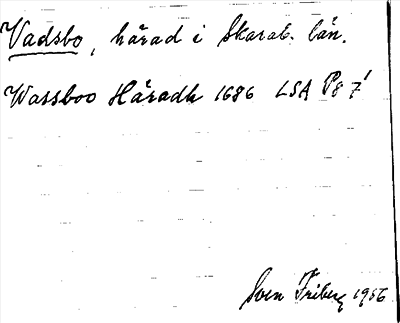 Vadsbo, härad i Skarab. län.
Wassboo Häradh 1686 LSA P8 7¹
Sven Friberg 1956